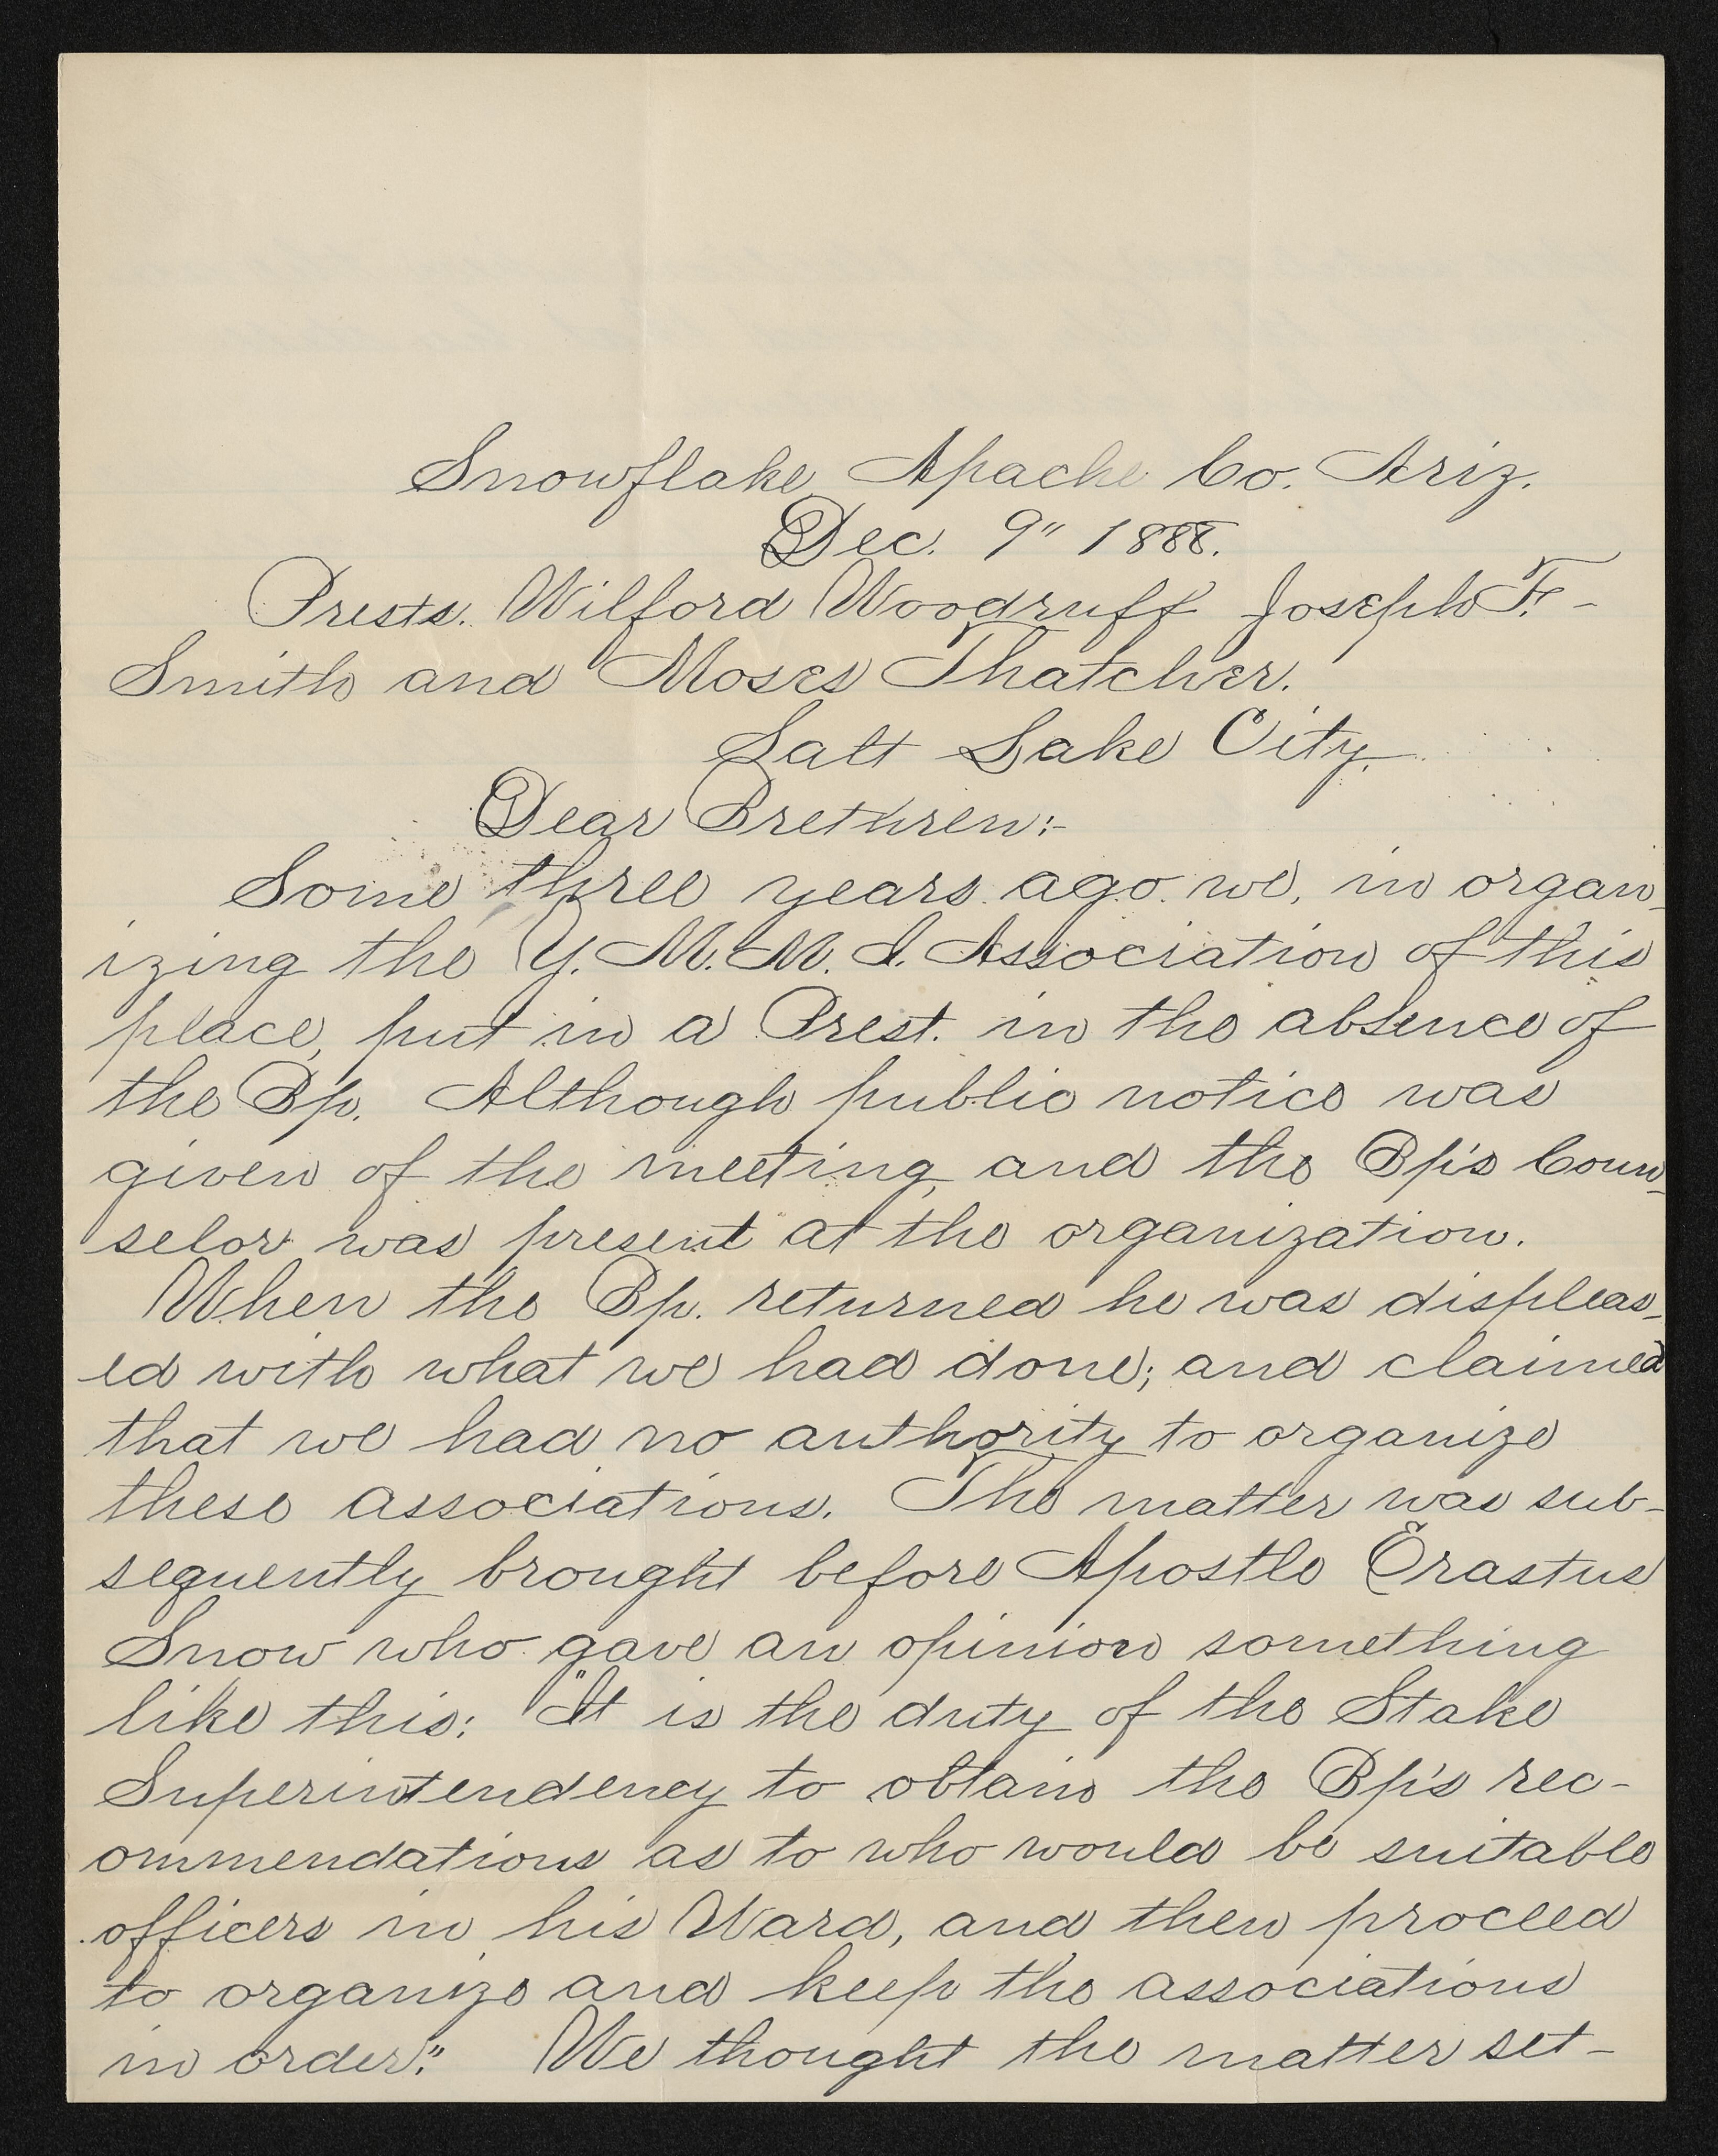 Snowflake Apache Co. Ariz.
Dec. 9" 1888.
Prests. Wilford Woodruff Joseph F. -
Smith and Moses Thatcher.
Salt Lake City.
Dear Brethren:-
Some three years ago we, in organ-
izing the Y. M. M. I. Association of this
place, put in a Prest. in the absence of
the Bp. Although public notice was
given of the meeting, and the Bp's Coun-
selor was present at the organization.
When the Bp. returned he was displeas-
ed with what we had done; and claimed
that we had no authority to organize
these associations. The matter was sub-
sequently brought before Apostle Erastus
Snow who gave an opinion something
like this: "It is the duty of the Stake
Superintendency to obtain the Bp's rec-
ommendations as to who would be suitable
officers in his Ward, and then proceed
to organize and keep the associations
in order." We thought the matter set-